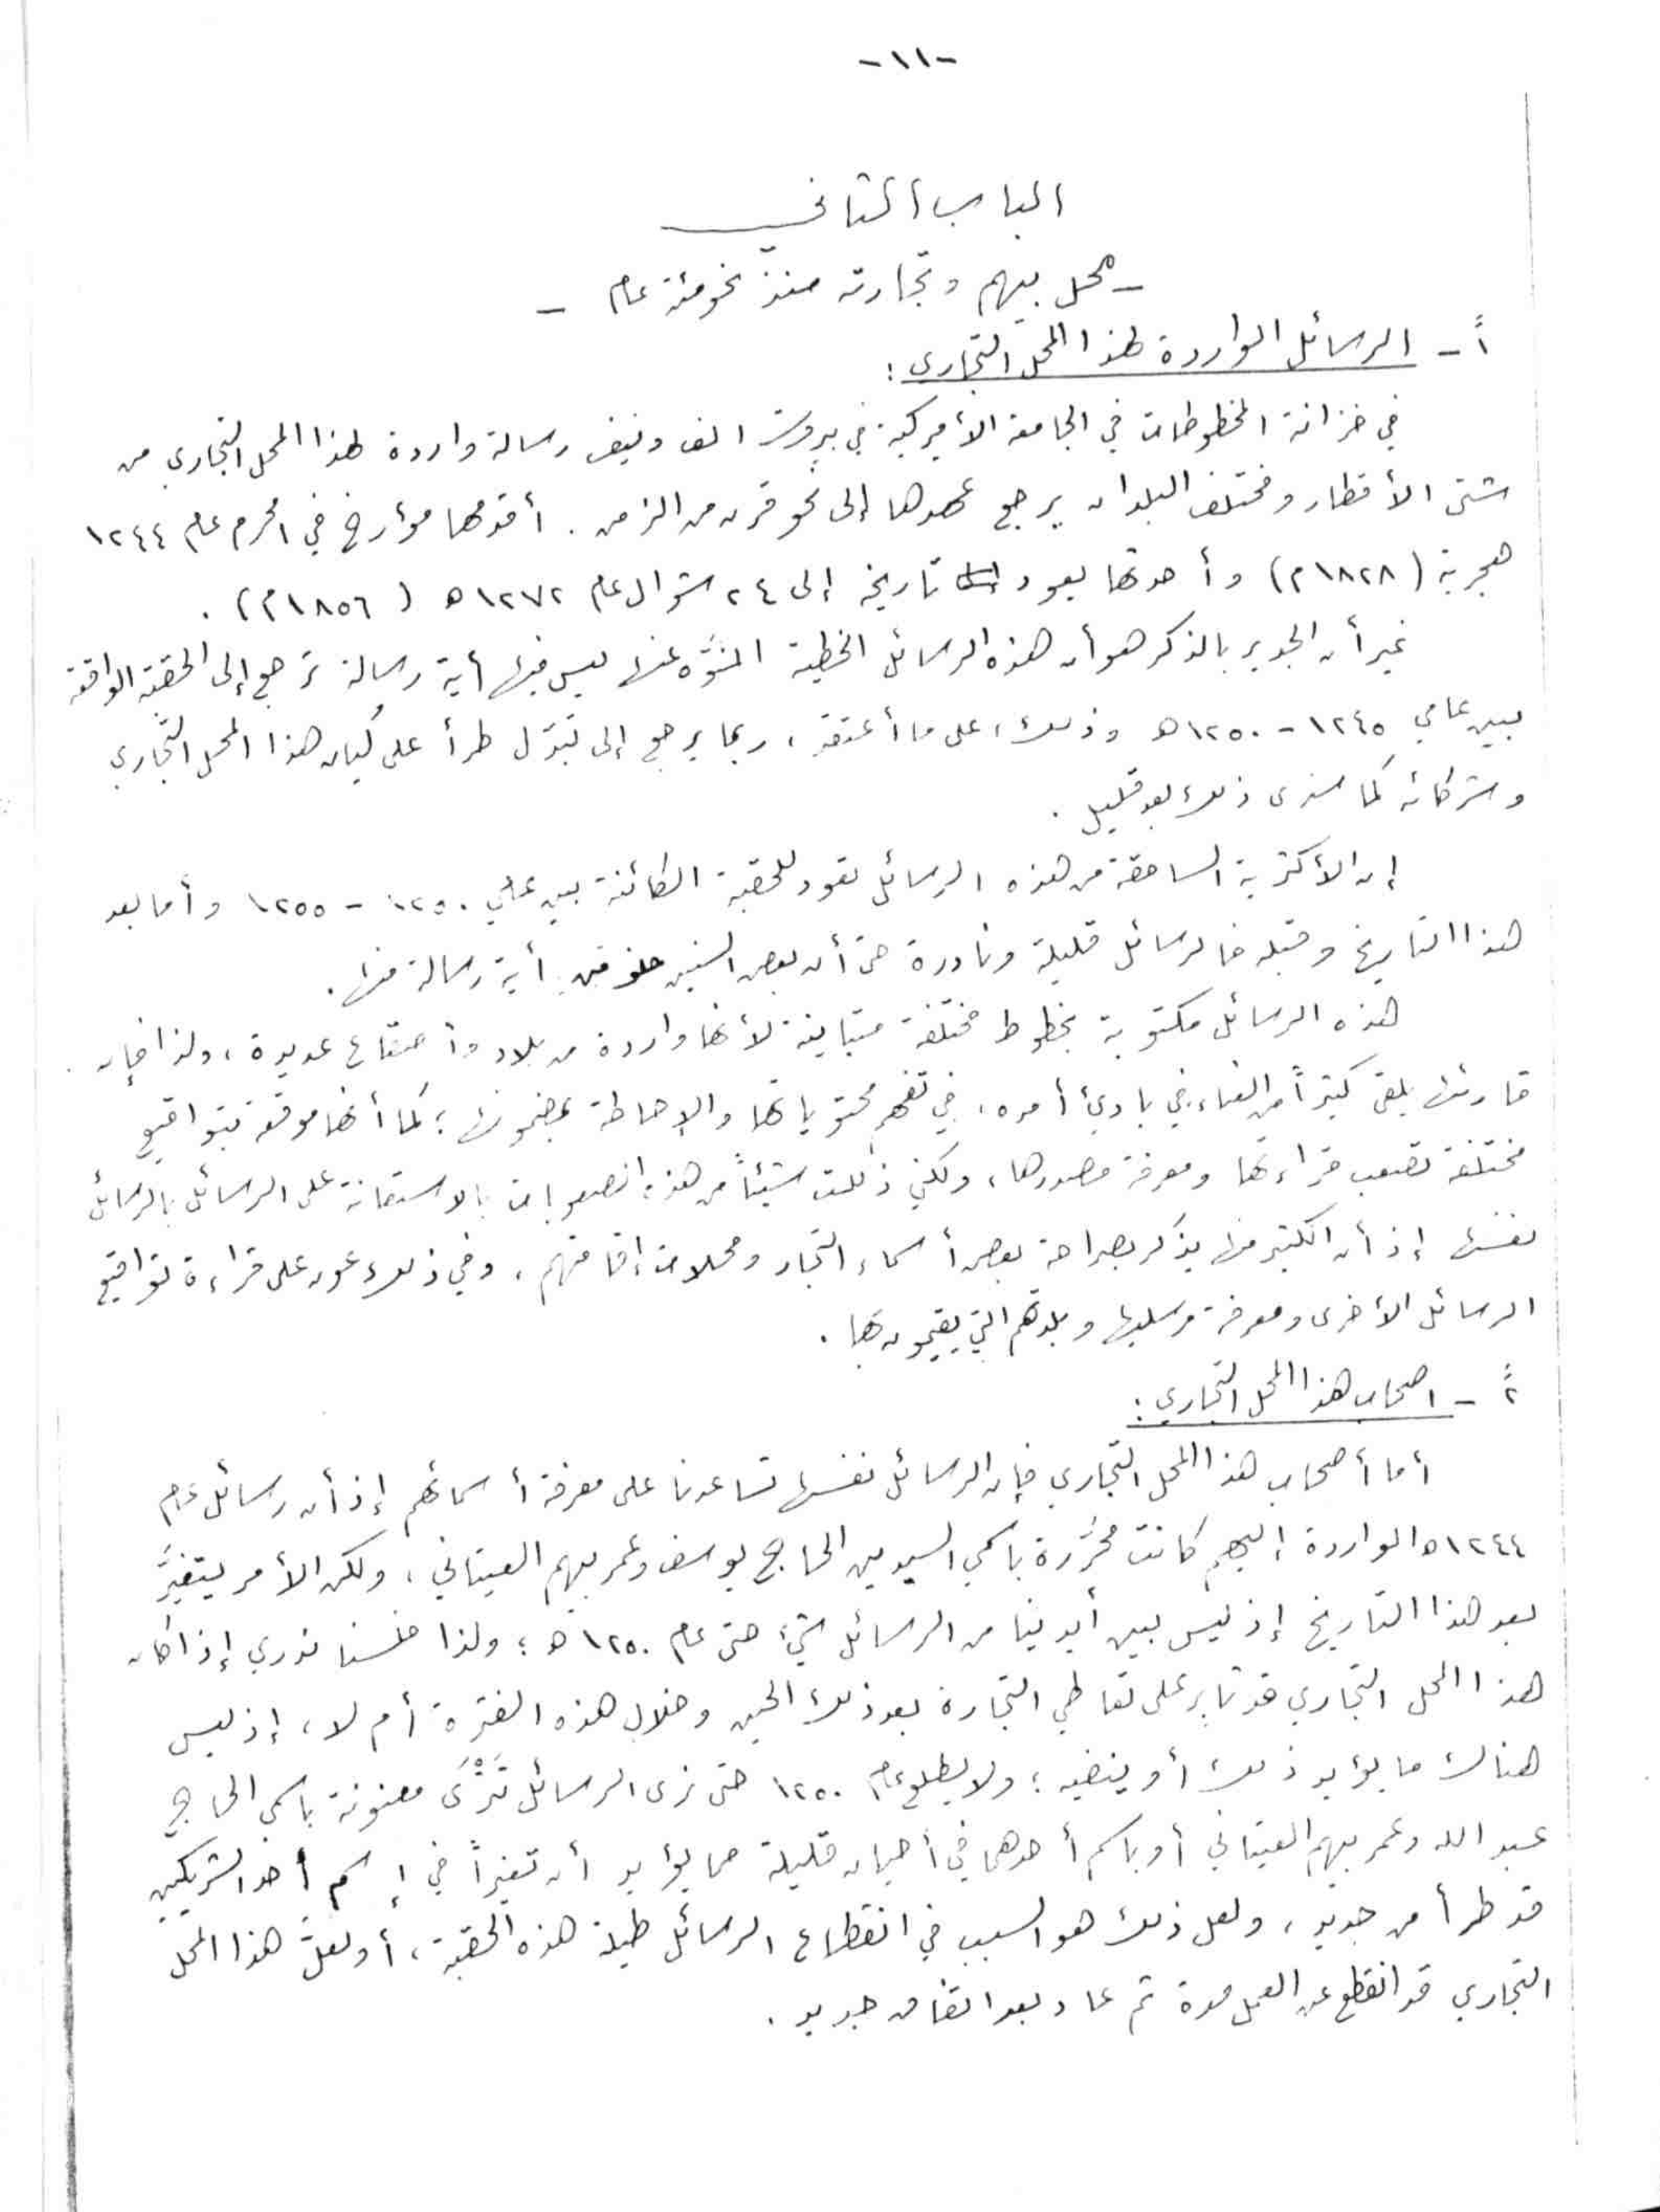 -١١-
الباب الثاني
- محل بيهم وتجارته منذ نحو مئة عام -
١ً - الرسائل الواردة لهذا المحل التجاري :
في خزانة المخطوطات في الجامعة الأميركية في بيروت الف ونيف رسالة واردة لهذا المحل التجاري من
شتى الأقطار ومختلف البلدان يرجع عهدها إلى نحو قرن من الزمن . أقدمها مؤرخ في محرم عام ١٢٤٤
هجرية (١٨٢٨م) وأحدثها يعود تاريخه إلى ٢٤ شوال عام ١٢٧٢ ه (١٨٥٦م) .
غير أن الجدير بالذكر هو أن هذه الرسائل الخطية المنوَّه عنها ليس فيها أية رسالة ترجع إلى الحقبة الواقعة
بين عامي ١٢٤٥ - ١٢٥٠ه وذلك، على ما أعتقد، ربما يرجع إلى تبدّل طرأ على كيان هذا المحل التجاري
وشركائه كما سنرى ذلك بعد قليل .
إن الأكثرية الساحقة من هذه الرسائل تعود للحقبة الكائنة بين عامي ١٢٥٠ - ١٢٥٥ وأما بعد
هذا التاريخ وقبله فالرسائل قليلة ونادرة حتى أن بعض السنين خلو من أية رسالة منها .
هذه الرسائل مكتوبة بخطوط مختلفة متباينة لأنها واردة من بلاد وأصقاع عديدة، ولذا فإن
قارئها يلقى كثيراً من العناء، في بادئ أمره، في تفهم محتوياتها والإحاطة بمضمونها ؛ كما أنها موقعة بتواقيع
مختلفة تصعب قراءتها ومعرفة مصدرها، ولكني ذللت شيئاً من هذه الصعوبات بالاستعانة على الرسائل بالرسائل
نفسها إذ أن الكثير منها يذكر بصراحة بعض أسماء التجار ومحلات إقامتهم، وفي ذلك عون على قراءة تواقيع
الرسائل الأخرى ومعرفة مرسليها وبلدتهم التي يقيمون بها .
٢ً - اصحاب هذا المحل التجاري :
أما أصحاب هذا المحل التجاري فإن الرسائل نفسها تساعدنا على معرفة أسمائهم إذ أن رسائل عام
١٢٤٤ه الواردة إليهم كانت محرَّرة باسمي السيدين الحاج يوسف وعمر بيهم العيتاني، ولكن الأمر يتغيَّر
بعد هذا التاريخ إذ ليس بين أيدينا من الرسائل شيء حتى عام ١٢٥٠ ه ؛ ولذا فلسنا ندري إذا كان
هذا المحل التجاري قد ثابر على تعاطي التجارة بعد ذلك الحين وخلال هذه الفترة أم لا، إذ ليس
هناك ما يؤيد ذلك أو ينفيه ؛ ولا يطلع عام ١٢٥٠ حتى نرى الرسائل تَتْرَى معنونة باسمي الحاج
عبد الله وعمر بيهم العيتاني أو باسم أحدهما في أحيان قليلة مما يؤيد أن تغيراً في إسم أحد الشريكين
قد طرأ من جديد، ولعل ذلك هو السبب في انقطاع الرسائل طيلة هذه الحقبة، أو لعلَّ هذا المحل
التجاري قد انقطع عن العمل مدة ثم عاد بعد اتفاق جديد .